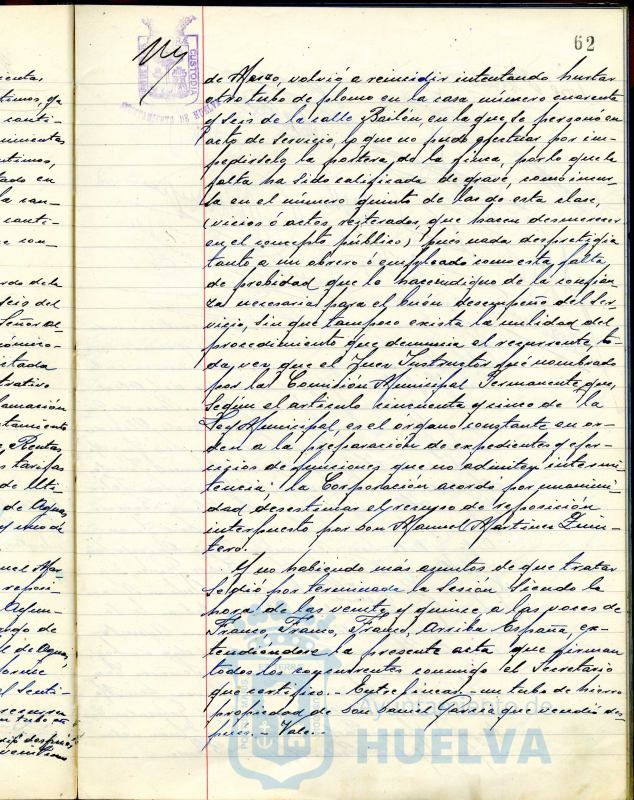 62
CUSTODIA
AYUNTAMIENTO DE HUELVA
de Marzo, volvió a reincidir intentando hurtar
otro tubo de plomo en la casa, número cuarenta
y seis de la calle Bailén, en la que se personó en
acto de servicio, lo que no pudo efectuar por im-
pedirselo la portera, de la finca, por lo que la
falta ha sido calificada de grave, como incur-
sa en el número quinto de las de esta clase,
(vicios ó actos reiterados, que hacen desmerecer
en el concepto público) pues nada desprestigia
tanto a un obrero ó empleado como esta falta
de probidad que lo hace indigno de la confian-
za necesaria para el buen desempeño del ser-
vicio, sin que tampoco exista la nulidad del
procedimiento que denuncia el recurrente, to-
da vez que el Juez Instructor fué nombrado
por la Comisión Municipal Permanente, que,
según el artículo cincuenta y cinco de la
Ley Municipal, es el organo constante en or-
den a la preparación de expedientes y ejer-
cicios de funciones que no admiten intermi-
tencia: la Corporación acordó por unanimi-
dad desestimar el recurso de reposición
interpuesto por Don Manuel Martinez Quin-
tero.
Y no habiendo más asuntos de que tratar
se dió por terminada la sesión siendo la
hora de las veinte y quince, a las voces de
Franco, Franco, Franco, Arriba España, ex-
tendiendose la presente acta que firman
todos los concurrentes conmigo el Secretario
que certifico.- Entre lineas - un tubo de hierro
propiedad de Don Daniel Garcia que vendió des-
pues. - Vale.-
Ayuntamiento de
HUELVA